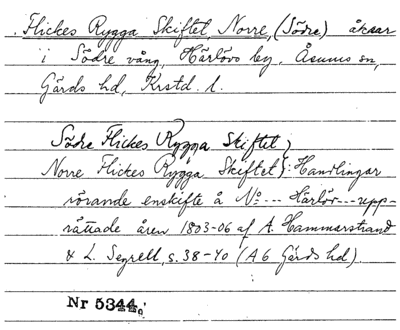 Flickes Rygga Skiftet, Norre, (Södre) åkrar
i Södre vång, Härlövs by, Åsums sn,
Gärds hd, Krstd. l.
Södre Flickes Rygga Skiftet,
Norre Flickes Rygga Skiftet): Handlingar
rörande enskifte å No --- Härlöv --- upp-
rättade åren 1803-06 af A. Hammarstrand
& L. Segrell, s. 38-40 (A6 Gärds hd).
Nr 5344.